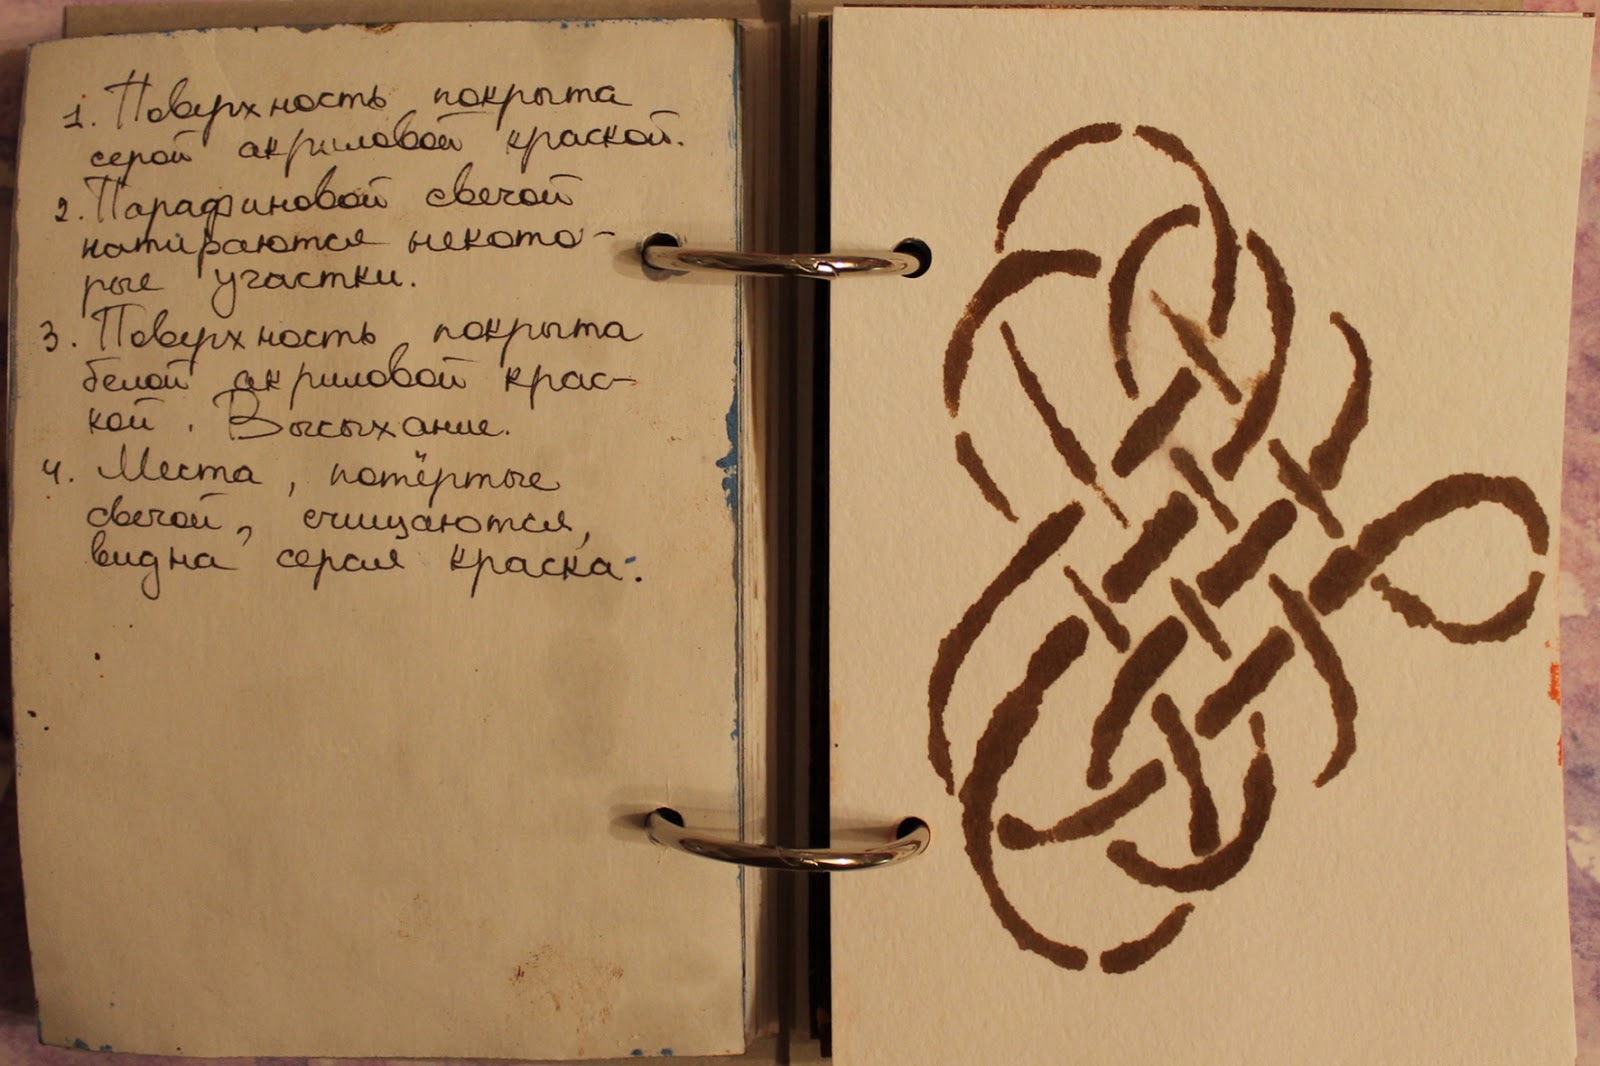 1. Поверхность покрыта
серой акриловой краской.
2. Парафиновой свечой
натираются некото-
рые участки.
3. Поверхность покрыта
белой акриловой крас-
кой. Высыхание.
4. Места, потёртые
свечой, счищаются,
видна серая краска.